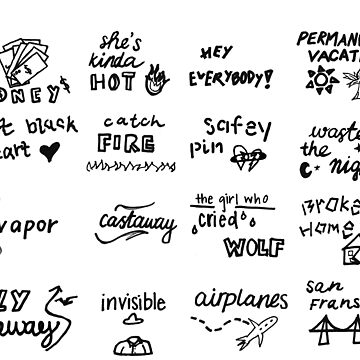 ONEY$
she's
kinda
HOT
HEY
EVERYBODY!
PERMANE
VACAT
t black
art
catch
FIRE
safety
pin
waste
the
nig
vapor
castaway
the girl who
cried
WOLF
BROKE
HOME
LY
aways
invisible
airplanes
san
Frans